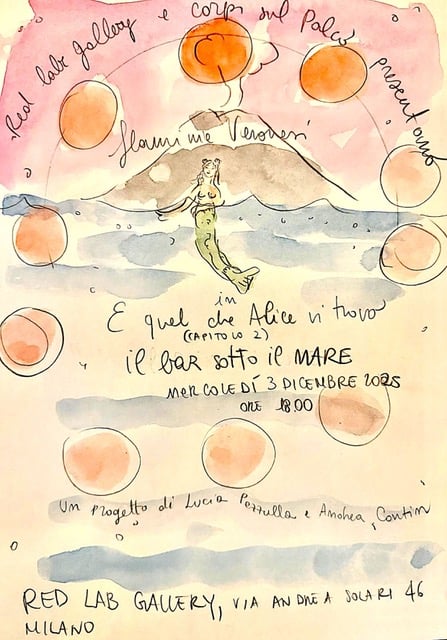 Red lab gallery e corpi sul palco presentano
Flaminia Veronesi
in
E quel che Alice vi trovò
(CAPITOLO 2)
il bar sotto il MARE
MERCOLEDÍ 3 DICEMBRE 2025
ORE 18.00
Un progetto di Lucia Pezzulla e Andrea Contin
RED LAB GALLERY, VIA ANDREA SOLARI 46
MILANO